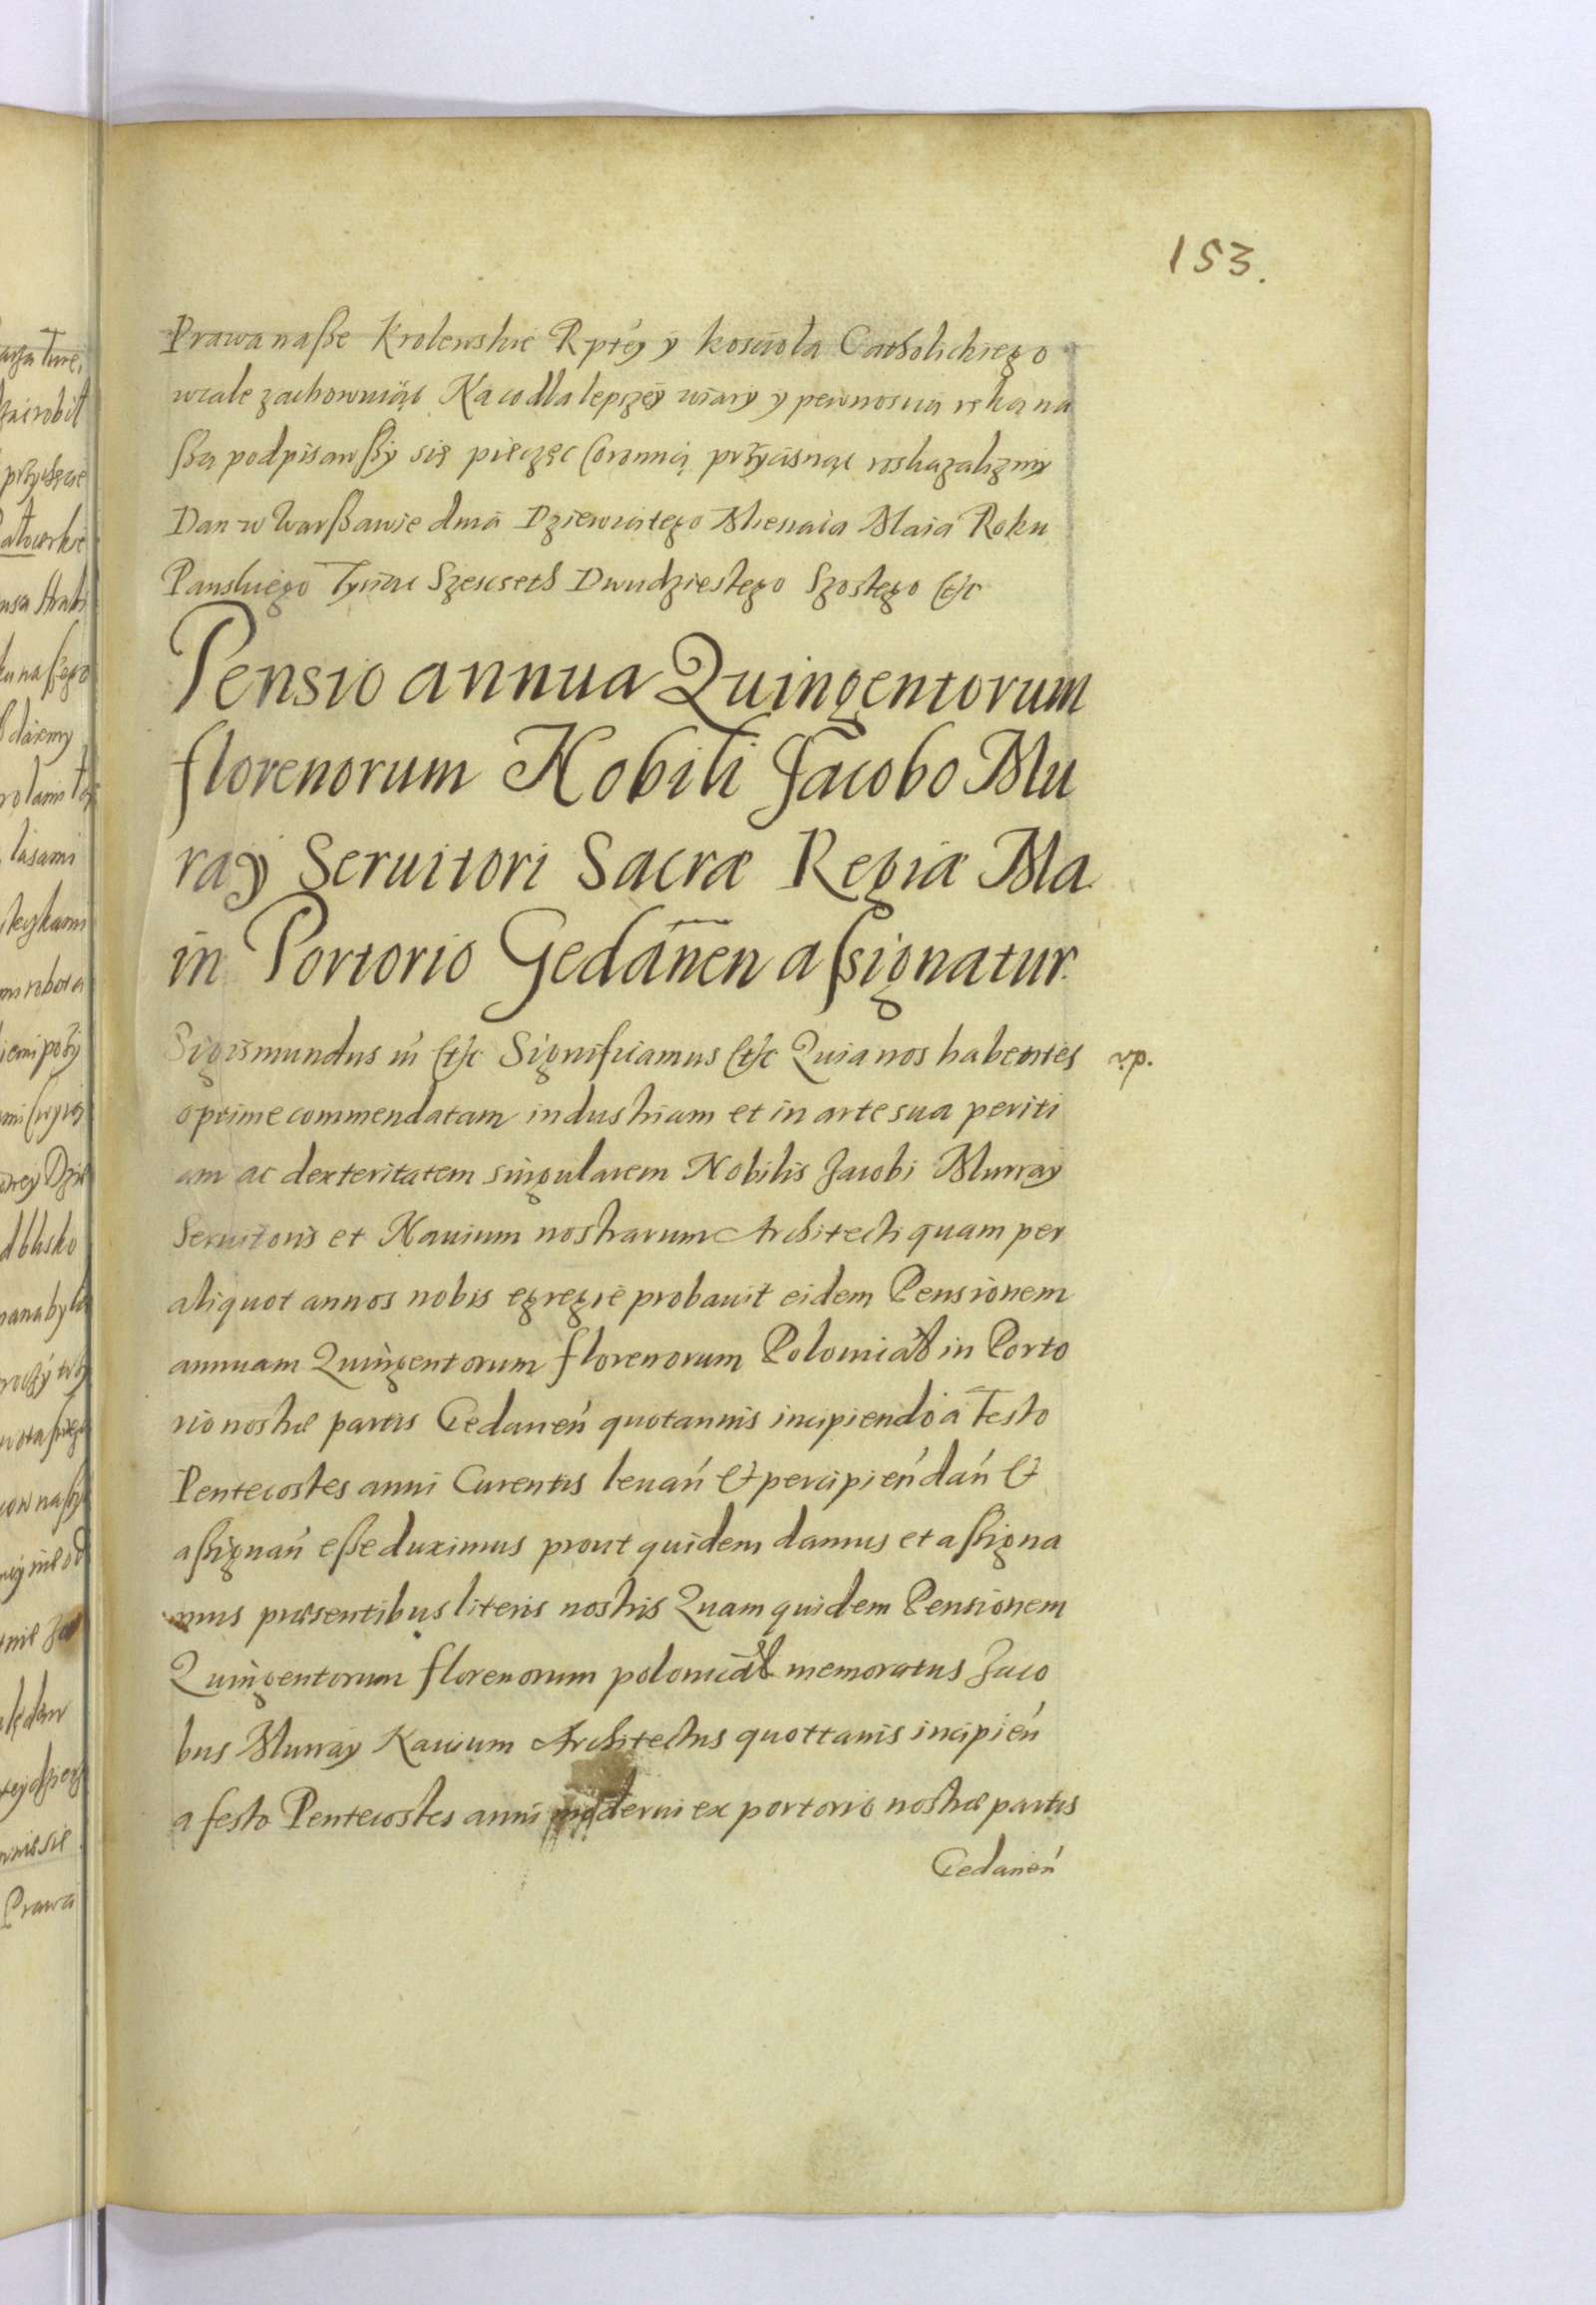 153.
Prawa naße Krolewskie Rptéy y kosciola Catholickiego
wcale zachowuiąc Na co dla lepszey wiary y pewnoscia ręką na
ßą podpisawßy się pieczęc Coronną przycisnąc roskazalizmy
Dan w Warßawie dnia Dziewiątego Miesiaca Maia Roku
Panskiego Tysiac Szescseth Dwudziestego Szostego &c
Pensio annua Quingentorum
florenorum Nobili Jacobo Mu
ray Seruitori Sacræ Regiæ Ma
in Portorio Gedanen assignatur.
Sigismundus iii &c Significamus &c Quia nos habentes
vp.
optime commendatam industriam et in arte sua periti
am ac dexteritatem singularem Nobilis Jacobi Murray
Seruitoris et Nauium nostrarum Architecti quam per
aliquot annos nobis egregie probauit eidem Pensionem
annuam Quingentorum florenorum Polonical in Porto
rio nostræ partis Gedanen quotannis incipiendo a Festo
Pentecostes anni Curentis leuan & percipien dan &
aßignan eße duximus prout quidem damus et aßigna
mus præsentibus literis nostris Quam quidem Pensionem
Quingentorum florenorum polonical memoratus Jaco
bus Murray Nauium Architectus quottanis incipien
a festo Pentecostes anni moderni ex portorio nostræ partis
Gedanen